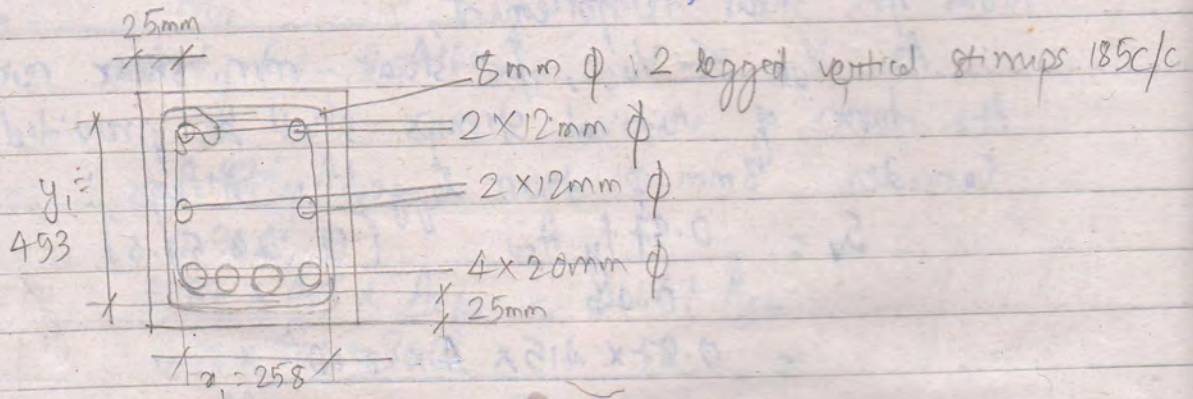 25mm
8mm ϕ 2 legged vertical stirrups 185c/c
2×12mm ϕ
2×12mm ϕ
y₁ =
493
4×20mm ϕ
25mm
x₁=258